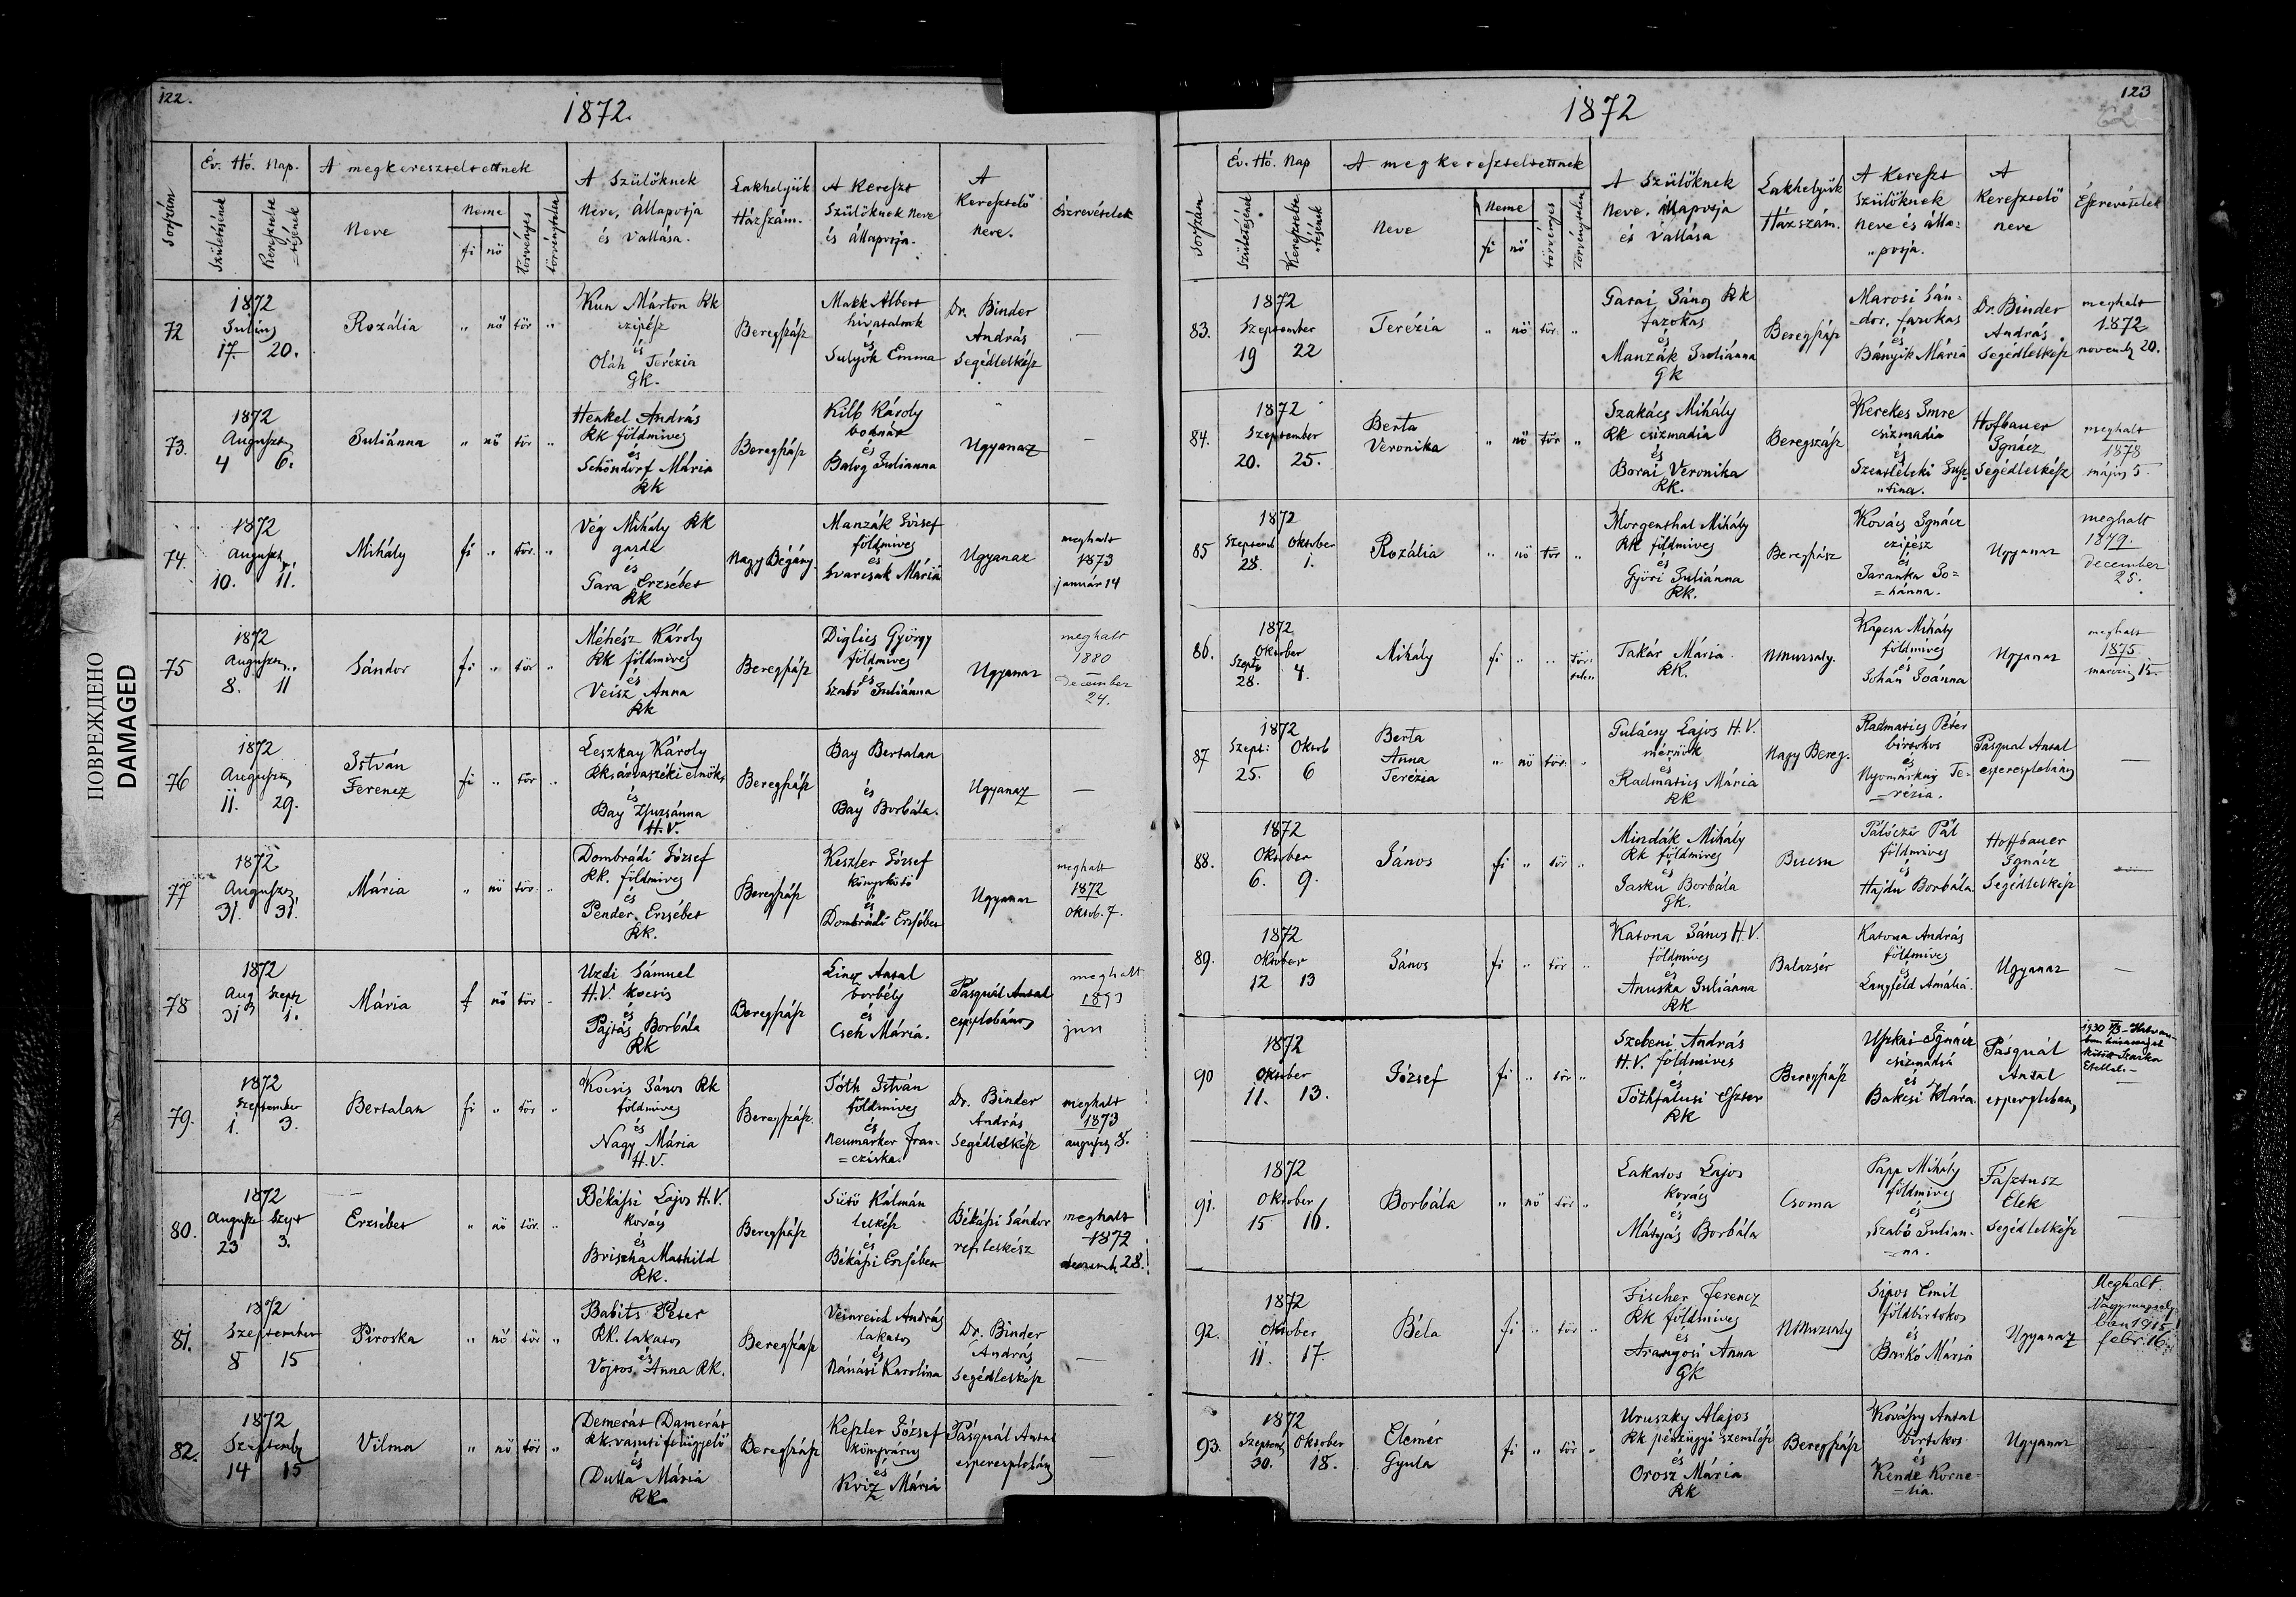 122.
1872.
Sorszám
Év. Hó. Nap.
Születésének
Keresztel-
-tésének
A megkereszteltettnek
Neve
Neme
fi nő
törvényes
törvénytelen
A Szülőknek
Neve, Állapotja
és Vallása.
Lakhelyük
Házszám.
A Kereszt
Szülőknek Neve
és Állapotja.
A
Keresztelő
Neve.
Észrevételek
72
1872
Julius
17 20.
Rozália
" nő tör "
Kun Márton RK
czipész
és
Oláh Terézia
GK.
Beregszász
Makk Albert
hivatalnok
és
Sulyok Emma
Dr. Binder
András
Segédlelkész
—
73.
1872
Augusztus
4 6.
Juliánna
" nő tör "
Henkel András
RK földmives
és
Schöndorf Mária
RK
Beregszász
Kilb Károly
bodnár
és
Balog Julianna
Ugyanaz
—
74.
1872
Augusztus
10. 11.
Mihály
fi " tör. "
Vég Mihály RK
gazda
és
Gara Erzsébet
RK
Nagy Bégány.
Manzák József
földmives
és
Svarcsak Mária
Ugyanaz
meghalt
1873
január 14
75
1872
Augusztus
8. 11
Sándor
fi " tör "
Méhész Károly
RK földmives
és
Veisz Anna
RK
Beregszász
Diglics György
földmives
és
Szabó Juliánna
Ugyanaz
meghalt
1880
December
24.
76
1872
Augusztus
11. 29.
István
Ferencz
fi " tör "
Leszkay Károly
RK árvaszéki elnök
és
Bay Zsuzsánna
H.V.
Beregszász
Bay Bertalan
és
Bay Borbála.
Ugyanaz
—
77
1872
Augusztus
31. 31.
Mária
" nő tör. "
Dombrádi József
RK. földmives
és
Pender Erzsébet
RK.
Beregszász
Keszler József
könyvkötő
és
Dombrádi Erzsébet
Ugyanaz
meghalt
1872
Oktob. 7.
78
1872
Aug Szept
31 1.
Mária
f nő tör "
Uzdi Sámuel
H.V. kocsis
és
Pajtás Borbála
RK
Beregszász
Lincz Antal
borbély
és
Cseh Mária.
Pásquál Antal
espplebános
meghalt
jun
79.
1872
Szeptember
1. 3.
Bertalan
fi " tör "
Kocsis János RK
földmives
és
Nagy Mária
H.V.
Beregszász.
Tóth István
földmives
és
Neumarker Fran-
=cziska.
Dr. Binder
András
Segédlelkész
meghalt
1873
augusz 5.
80.
1872
Auguszt Szept
23 3.
Erzsébet
" nő tör. "
Békássi Lajos H.V.
Kovács
és
Brischa Mathild
RK.
Beregszász
Sütő Kálmán
lelkész
és
Békássi Erzsébet
Békássi Sándor
ref. lelkész
meghalt
1872
decemb 28.
81.
1872
Szeptember
8 15
Piroska
" nő tör "
Babits Péter
RK. lakatos
és
Vojtos Anna RK.
Beregszász
Veinreich András
lakatos
és
Nánási Karolina
Dr. Binder
András
Segédlelkész
—
82.
1872
Szeptemb
14 15
Vilma
" nő tör "
Demerát Damerát
RK. vasuti felügyelő
és
Dulla Mária
RK.
Beregszász
Keszler József
könyvárus
és
Kviz Mária
Pásquál Antal
esperesplebán
—
123
62
1872
Sorszám
Év. Hó. Nap
Születésének
Keresztel-
"tésének
A megkereszteltettnek
Neve
Neme
fi nő
törvényes
törvénytelen
A Szülőknek
Neve. Állapotja
és Vallása
Lakhelyük
Házszám.
A Kereszt
Szülőknek
Neve és álla=
"potja.
A
Keresztelő
neve
Észrevételek
83.
1872
Szeptember
19 22
Terézia
" nő tör. "
Garai János RK
fazokas
és
Manzák Juliánna
GK
Beregszász
Marosi Sán=
=dor, fazokas
és
Bányik Mária
Dr. Binder
András
Segédlelkész
meghalt
1872
novemb 20.
84.
1872
Szeptember
20. 25.
Berta
Veronika
" nő tör "
Szakács Mihály
RK csizmadia
és
Borai Veronika
RK.
Beregszász
Kerekes Imre
csizmadia
és
Szentléleki Jusz
"tina.
Hofbauer
Ignácz
Segédlelkész
meghalt
1878
május 5.
85
1872
Szeptemb Oktober
28. 1.
Rozália
" nő tör "
Morgenthal Mihály
RK földmives
és
Győri Juliánna
RK.
Beregszász
Kovács Ignácz
czipész
és
Taranka Jo=
=hánna.
Ugyanaz
meghalt
1879.
December
25.
86.
1872
Oktober
Szept.
28. 4.
Mihály
fi " " tör.
telen
Takár Mária
RK.
NMuzsaly.
Kapcsa Mihály
földmives
és
Johán Joánna
Ugyanaz
meghalt
1875
marczius 15.
87
1872
Szept: Oktob
25. 6
Berta
Anna
Terézia
" nő tör. "
Gulácsy Lajos H.V.
mérnök
és
Radmatics Mária
RK
Nagy Bereg.
Radmatics Péter
birtokos
és
Nyomárkay Te-
=rézia.
Pásqual Antal
esperesplebán
—
88.
1872
Oktober
6. 9.
János
fi " tör "
Mindák Mihály
RK földmives
és
Jasku Borbála
GK.
Bucsu
Pálóczi Pál
földmives
és
Hajdu Borbála
Hoffbauer
Ignácz
Segédlelkész
—
89.
1872
Oktober
12 13
János
fi " tör "
Katona János H.V.
földmives
és
Anuska Juliánna
RK
Balazsér
Katona András
földmives
és
Langfeld Amália.
Ugyanaz
—
90
1872
Oktober
11. 13.
József
fi " tör "
Szebeni András
H.V. földmives
és
Tóthfalusi Eszter
RK
Beregszász
Uszkai Ignácz
csizmadia
és
Bakcsi Klára.
Pásquál
Antal
esperplebán
1930
ban házasságot
kötött Szarka
Etellel.—
91.
1872
Oktober
15 16.
Borbála
" nő tör "
Lakatos Lajos
Kovács
és
Mátyás Borbála
Csoma
Papp Mihály
földmives
és
Szabó Julian-
=na.
Fásztusz
Elek
Segédlelkész
—
92.
1872
Oktober
11. 17.
Béla
fi " tör "
Fischer Ferencz
RK földmives
és
Arangosi Anna
GK
NMuzsaly
Sipos Emil
földbirtokos
és
Barkó Mária
Ugyanaz
Meghalt.
Nagymuzsaly
ban 1915
febr. 16
93.
1872
Szeptemb Oktober
30. 18.
Elemér
Gyula
fi " tör "
Uruszky Alajos
RK pénzügyi szemlész
és
Orosz Mária
RK
Beregszász
Kovássy Antal
birtokos
és
Kende Korne-
=lia.
Ugyanaz
ПОВРЕЖДЕНО
DAMAGED